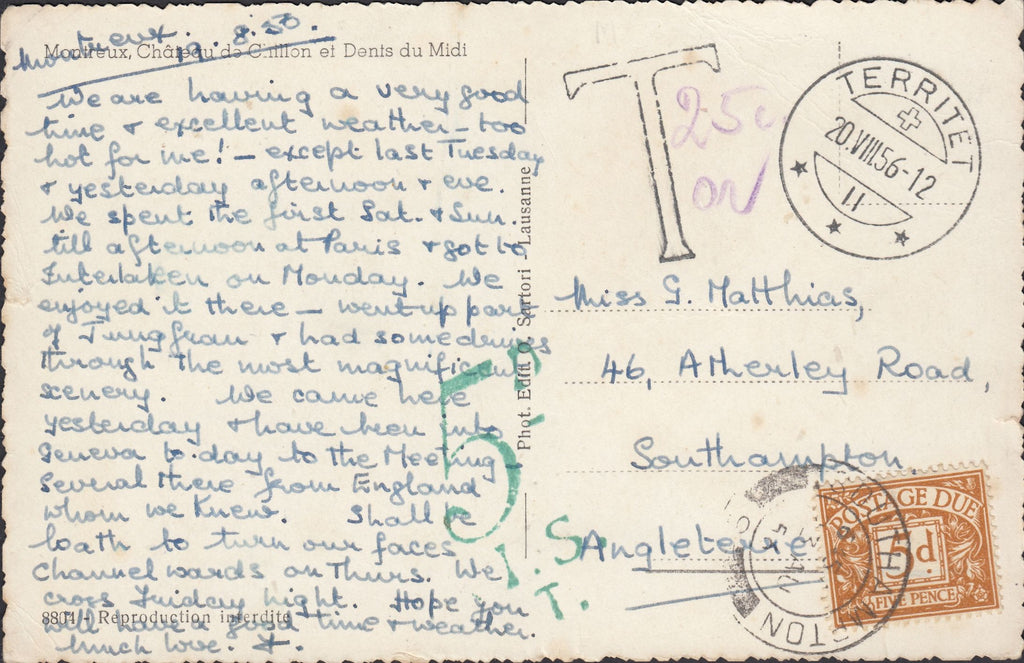 Montreux, Château de Chillon et Dents du Midi
Montreux. 19.8.56.
We are having a very good
time & excellent weather – too
hot for me! – except last Tuesday
& yesterday afternoon & eve.
We spent the first Sat. & Sun.
till afternoon at Paris & got to
Interlaken on Monday. We
enjoyed it there – went up part
of Jungfrau & had some drives
through the most magnificent
scenery. We came here
yesterday & have been into
Geneva to-day to the Meeting –
Several there from England
whom we knew. Shall be
loath to turn our faces
Channel wards on Thurs. We
cross Friday night. Hope you
will have a good time & weather.
Much love.
8804 - Reproduction interdite
Phot. Edit. O. Sartori - Lausanne
T
25c
TERRITET
20.VIII.56-12
II
Miss G. Matthias,
46, Atherley Road,
Southampton,
Angleterre
5D
I.S.
T.
POSTAGE DUE
5d.
FIVE PENCE
SOUTHAMPTON